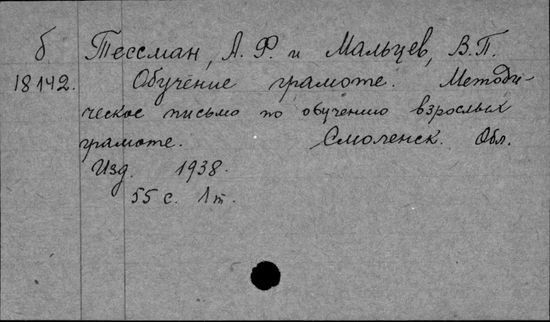 б Тессман, А. Ф. и Мальцев, В. П.
18142. Обучение грамоте. Методи-
ческое письмо по обучению взрослых
грамоте. Смоленск. Обл.
Изд. 1938.
55 с. 1 т.